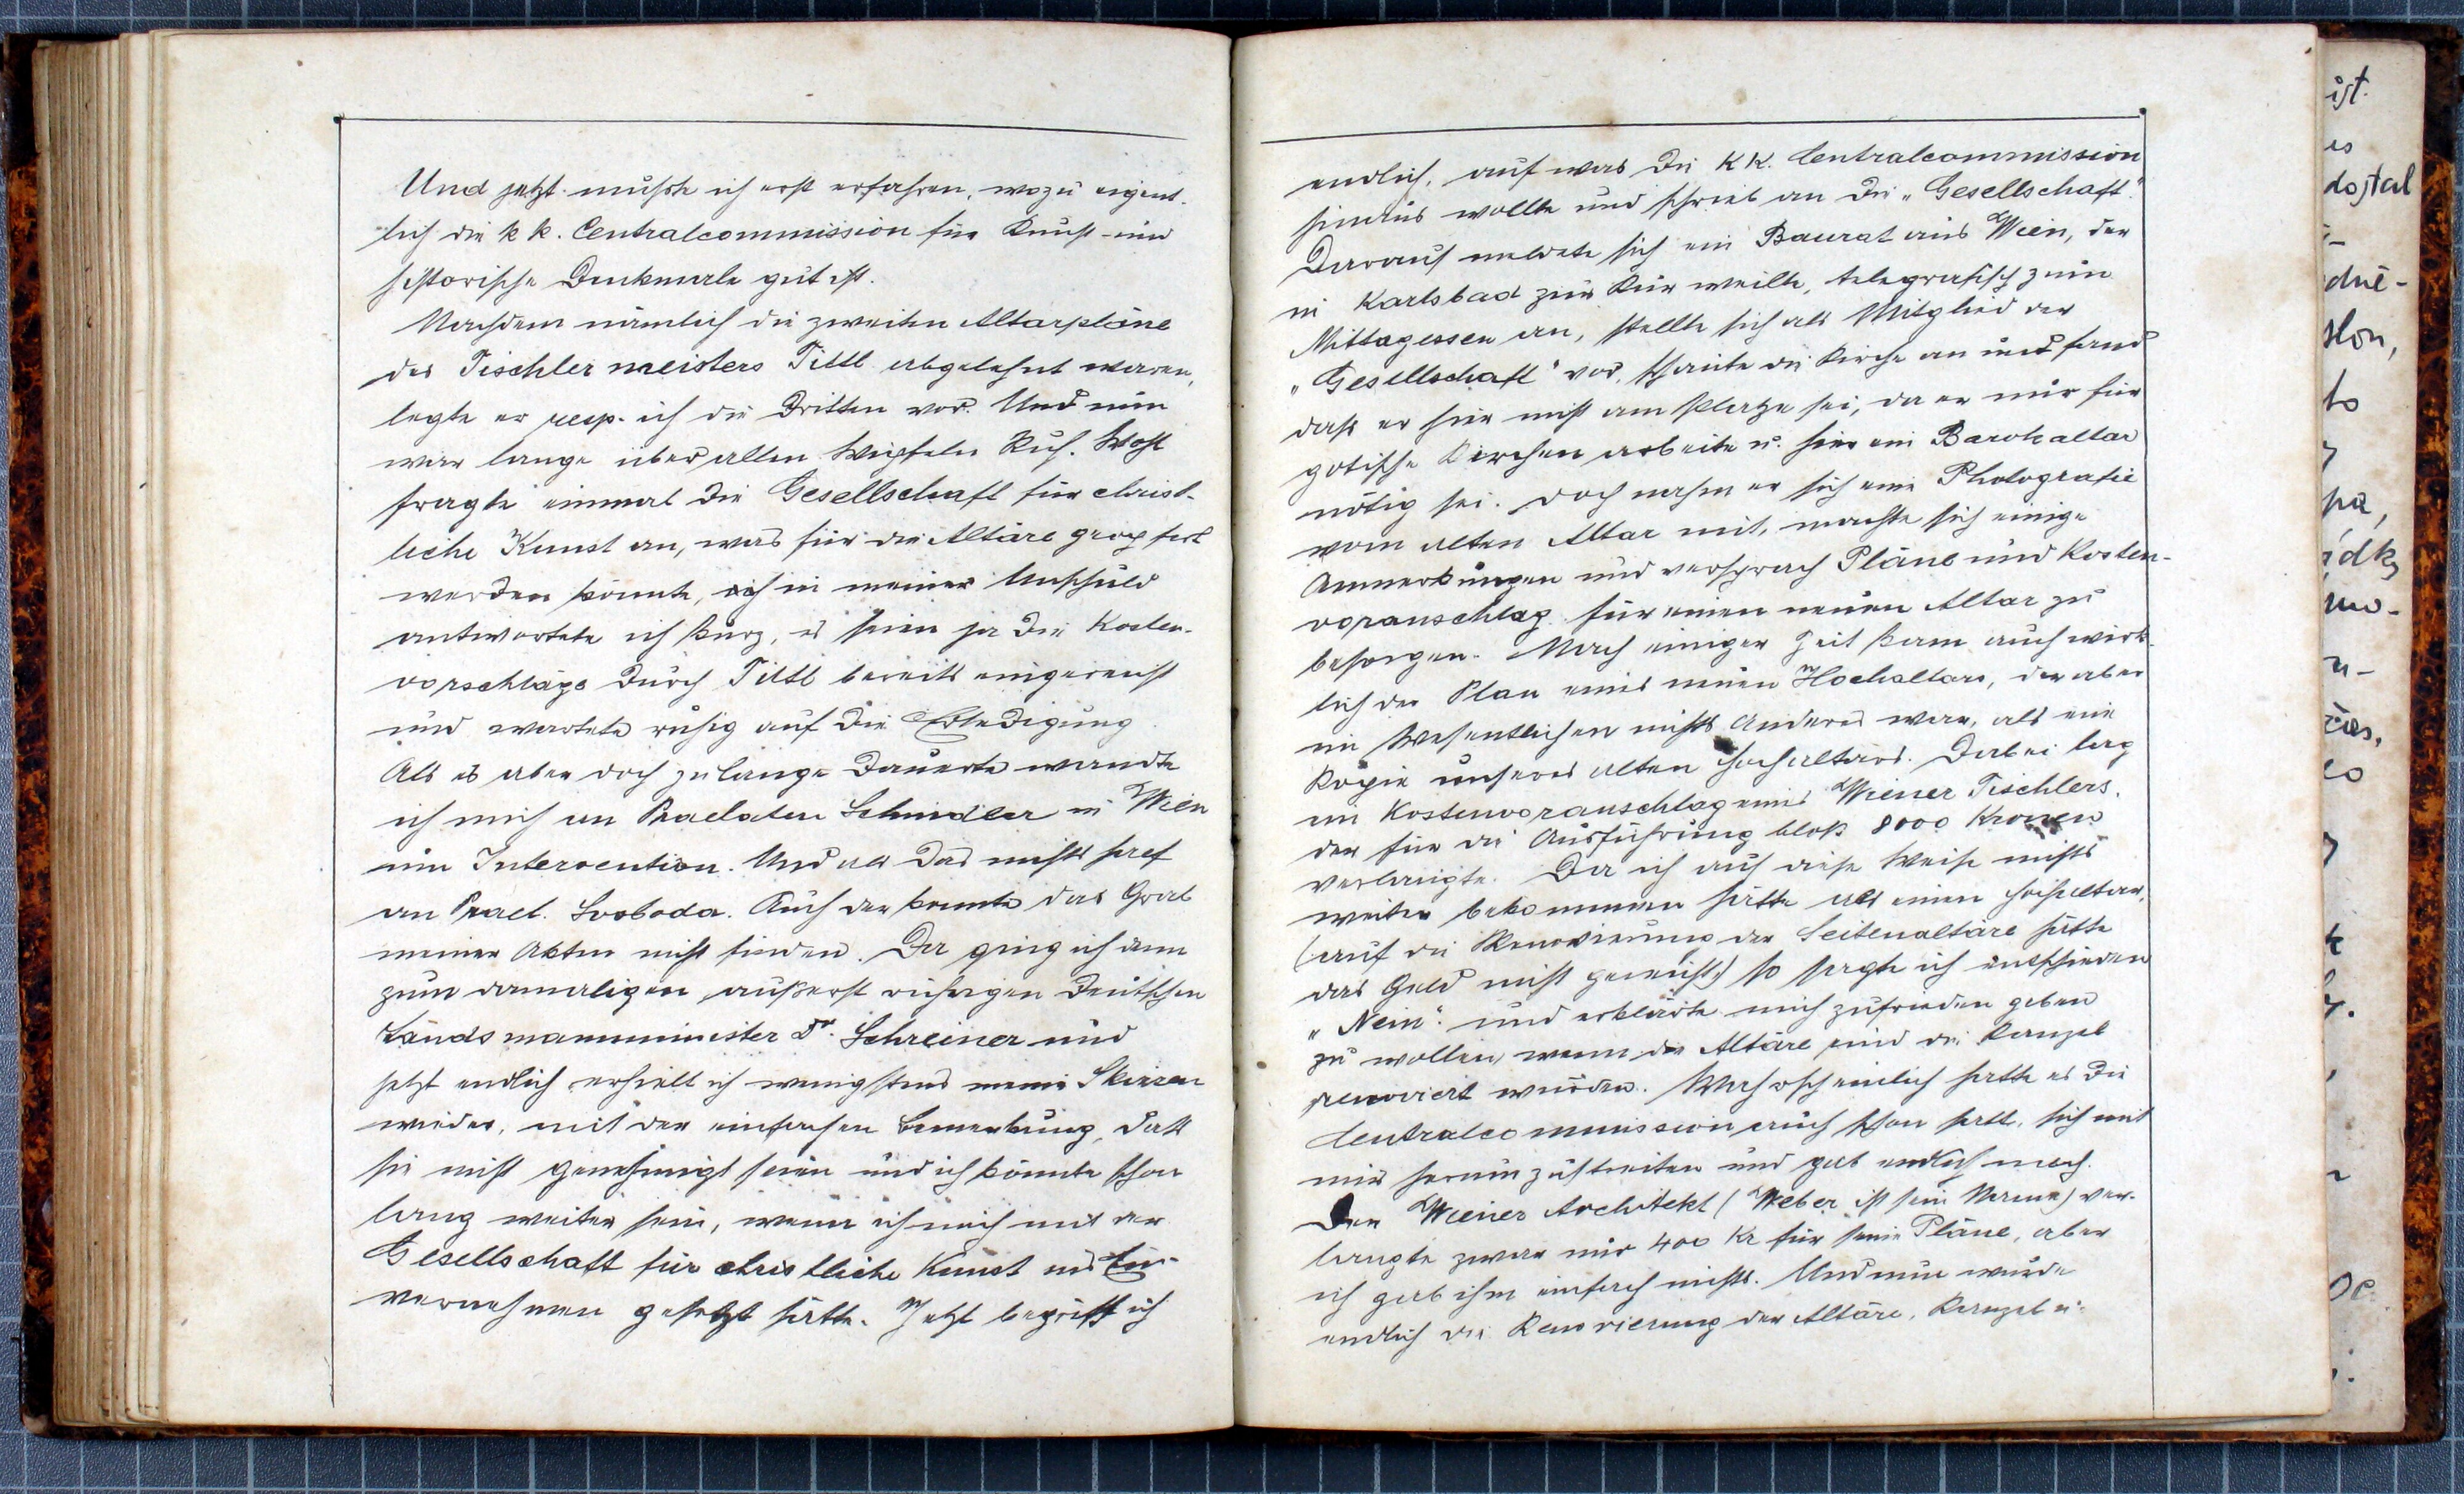 Und jetzt mußte ich erst erfahren, wozu eigent-
lich die k k. Centralcommission für Kunst- und
historische Denkmale gut ist.
Nachdem nämlich die zweiten Altarpläne
des Tischlermeisters Tittl abgelehnt waren,
legte er resp. ich die Dritten vor. Und nun
war lange über allen Wipfeln Ruh. Wohl
fragte einmal die Gesellschaft für christ-
liche Kunst an, was für die Altäre geopfert
werden könnte, doch in meiner Unschuld
antwortete ich kurz, es seien ja die Kosten-
vorschläge durch Tittl bereits eingereicht
und wartete ruhig auf die Erledigung
Als es aber doch zu lange dauerte wandte
ich mich an Praelaten Schindler in Wien
um Intervention. Und als das nichts half
an Prael. Svoboda. Auch der konnte das Grab
meiner Akten nicht finden. Da ging ich denn
zum damaligen äußerst rührigen Deutschen
Landsmannminister Dr. Schreiner und
jetzt endlich erhielt ich wenigstens meine Skizzen
wieder, mit der einfachen Bemerkung, daß
sie nicht genehmigt seien und ich könnte schon
lang weiter sein, wenn ich mich mit der
Gesellschaft für christliche Kunst ins Ein-
vernehmen gesetzt hätte. Jetzt begriff ich
endlich, auf was die KK. Centralcommission
hinaus wollte und schrieb an die „Gesellschaft".
Darauf meldete sich ein Baurat aus Wien, der
in Karlsbad zur Kur weilte, telegrafisch zum
Mittagessen an, stellte sich als Mitglied der
„Gesellschaft" vor, schaute die Kirche an und fand
daß er hier nicht am Platze sei, da er nur für
gotische Kirchen arbeite u. hier ein Barokaltar
nötig sei. Doch nahm er sich eine Photografie
vom alten Altar mit, machte sich einige
Anmerkungen und versprach Pläne und Kosten-
voranschlag für einen neuen Altar zu
besorgen. Nach einiger Zeit kam auch wirk-
lich der Plan eines neuen Hochaltars, der aber
im Wesentlichen nichts Anderes war, als eine
Kopie unseres alten Hochaltars. Dabei lag
ein Kostenvoranschlag eines Wiener Tischlers,
der für die Ausführung bloß 8000 Kronen
verlangte. Da ich auf diese Weise nichts
weiter bekommen hätte als einen Hochaltar,
(auf die Renovierung der Seitenaltäre hätte
das Geld nicht gereicht) so sagte ich entschieden
„Nein". und erklärte mich zufrieden geben
zu wollen, wenn die Altäre und die Kanzel
renoviert würden. Wahrscheinlich hatte es die
Centralcommission auch schon satt, sich mit
mir herumzustreiten und gab endlich nach.
Der Wiener Architekt (Weber ist sein Name) ver-
langte zwar nur 400 Kr für seine Pläne, aber
ich gab ihm einfach nichts. Und nun wurde
endlich die Renovierung der Altäre, Kanzel u.
ist
es
dostal